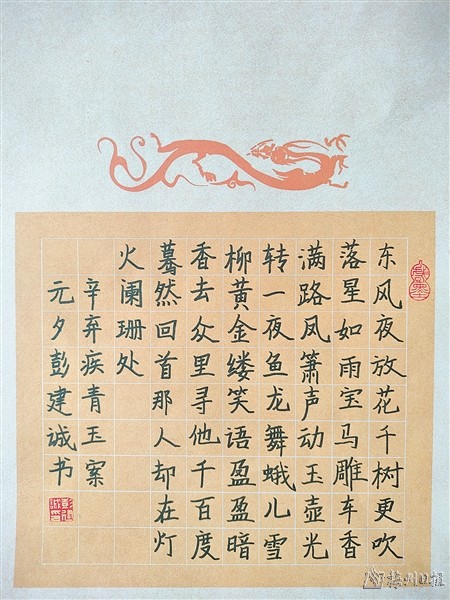 东风夜放花千树更吹
落星如雨宝马雕车香
满路凤箫声动玉壶光
转一夜鱼龙舞蛾儿雪
柳黄金缕笑语盈盈暗
香去众里寻他千百度
驀然回首那人却在灯
火阑珊处
辛弃疾青玉案
元夕彭建诚书